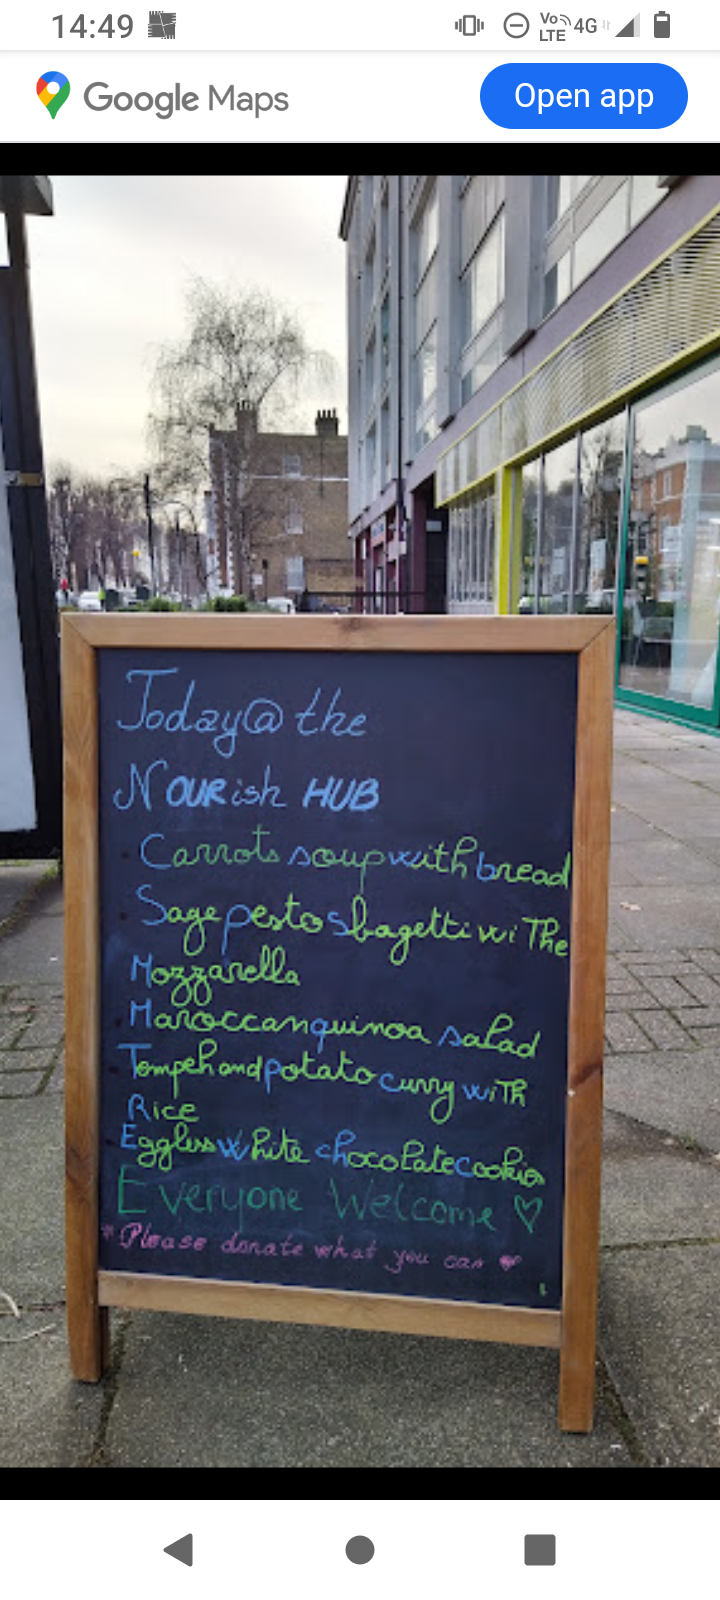 14:49
Vo LTE 4G
Google Maps
Open app
Today@ the
NOURish HUB
Carrots soup with bread
Sage pesto sbagetti wi The
Mozzarella
Maroccan quinoa salad
Tempeh and potato curry wiTh
Rice
Eggless white chocolate cookies
Everyone Welcome ♡
* Please donate what you can ♥